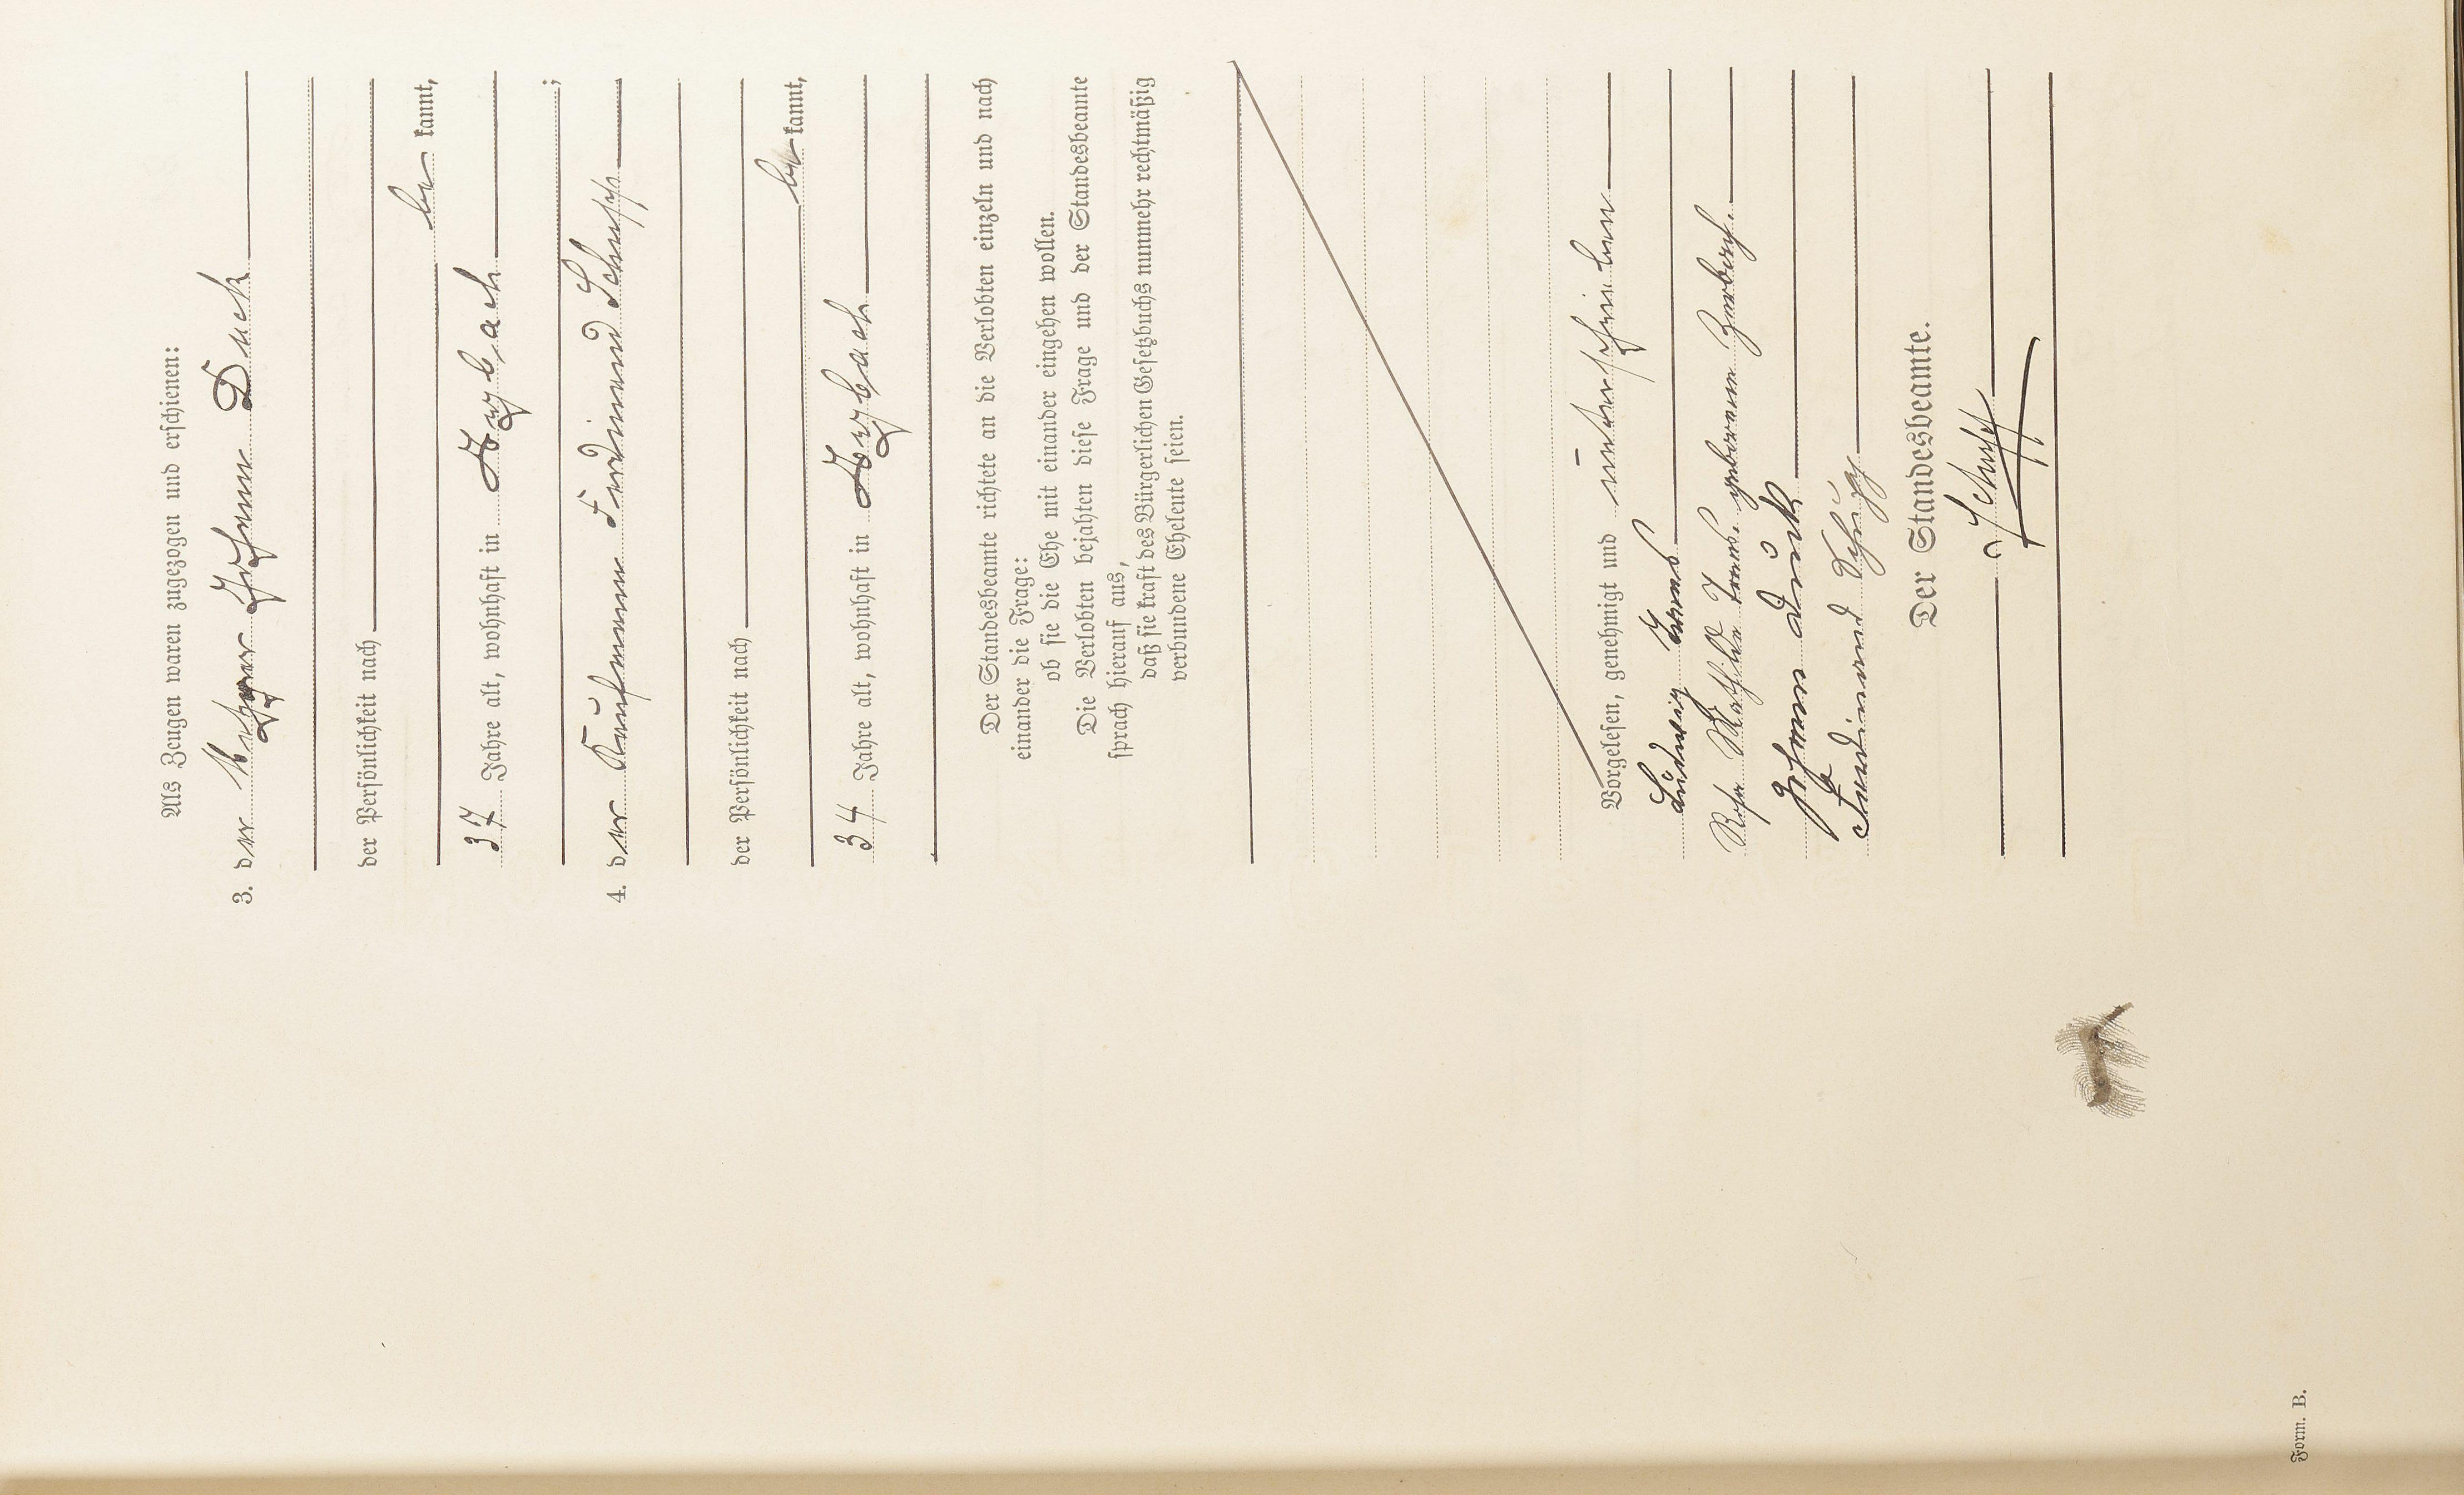 Als Zeugen waren zugezogen und erschienen:
3. der Metzger Johann Duck
der Persönlichkeit nach
be kannt,
37 Jahre alt, wohnhaft in Herbach
;
4. der Kaufmann Ferdinand Schupp
der Persönlichkeit nach
be kannt,
34 Jahre alt, wohnhaft in Herbach
Der Standesbeamte richtete an die Verlobten einzeln und nach
einander die Frage:
ob sie die Ehe mit einander eingehen wollen.
Die Verlobten bejahten diese Frage und der Standesbeamte
sprach hierauf aus,
daß sie kraft des Bürgerlichen Gesetzbuchs nunmehr rechtmäßig
verbundene Eheleute seien.
Vorgelesen, genehmigt und unterschrieben
Ludwig
Mathilde geborene
Johann Duck
Ferdinand Schupp
Der Standesbeamte.
Schupp
Form. B.